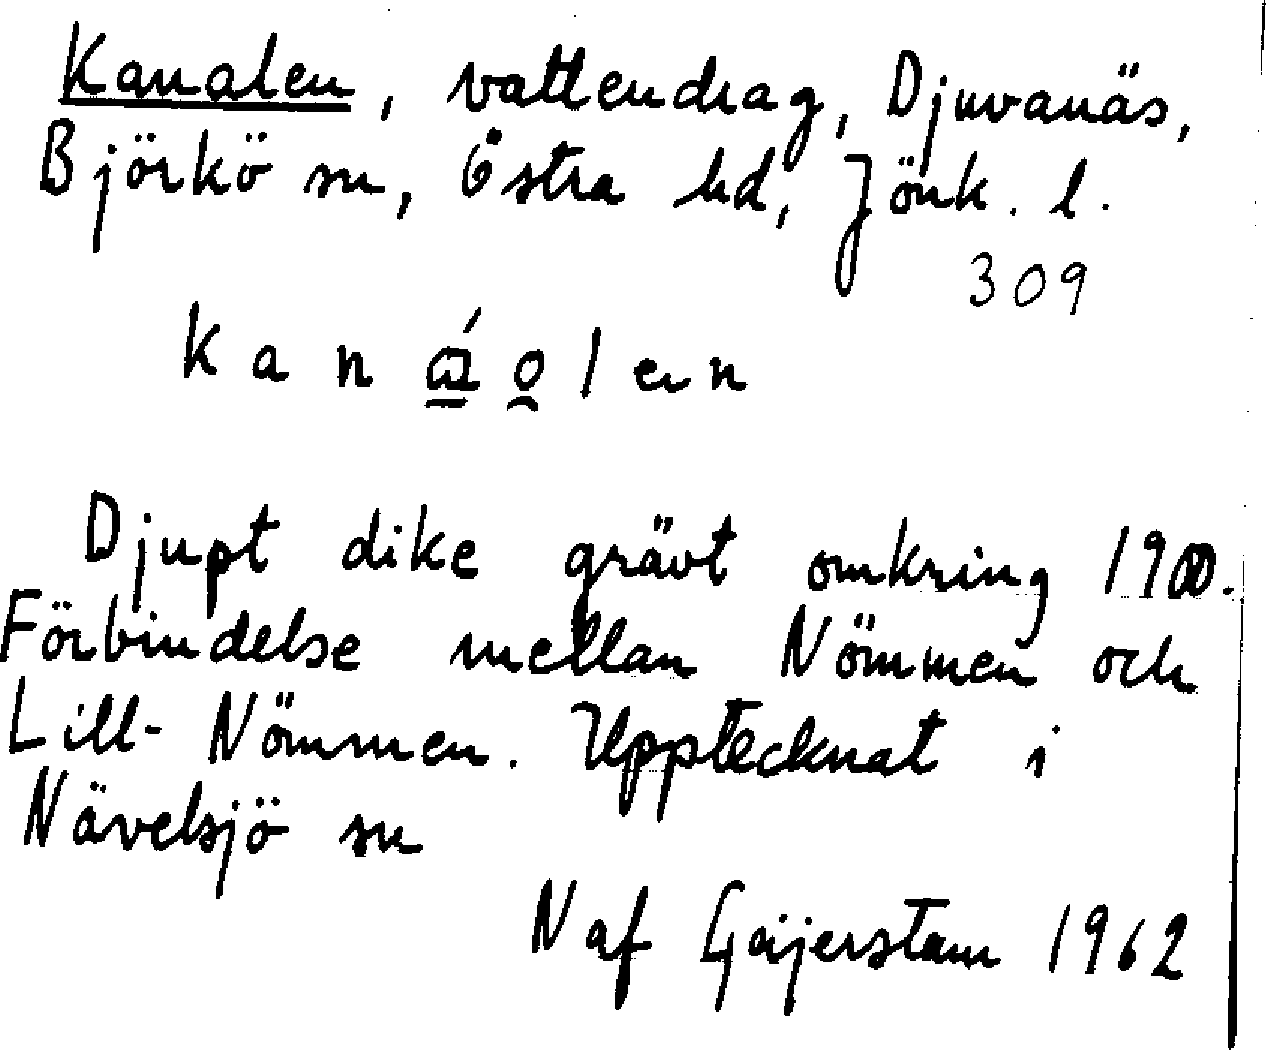 Kanalen, vattendrag, Djuvanäs,
Björkö sn, Östra hd, Jönk. l.
309
Djupt dike grävt omkring 1900.
Förbindelse mellan Nömmen och
Lill-Nömmen. Upptecknat i
Nävelsjö sn
N af Geijerstam 1962